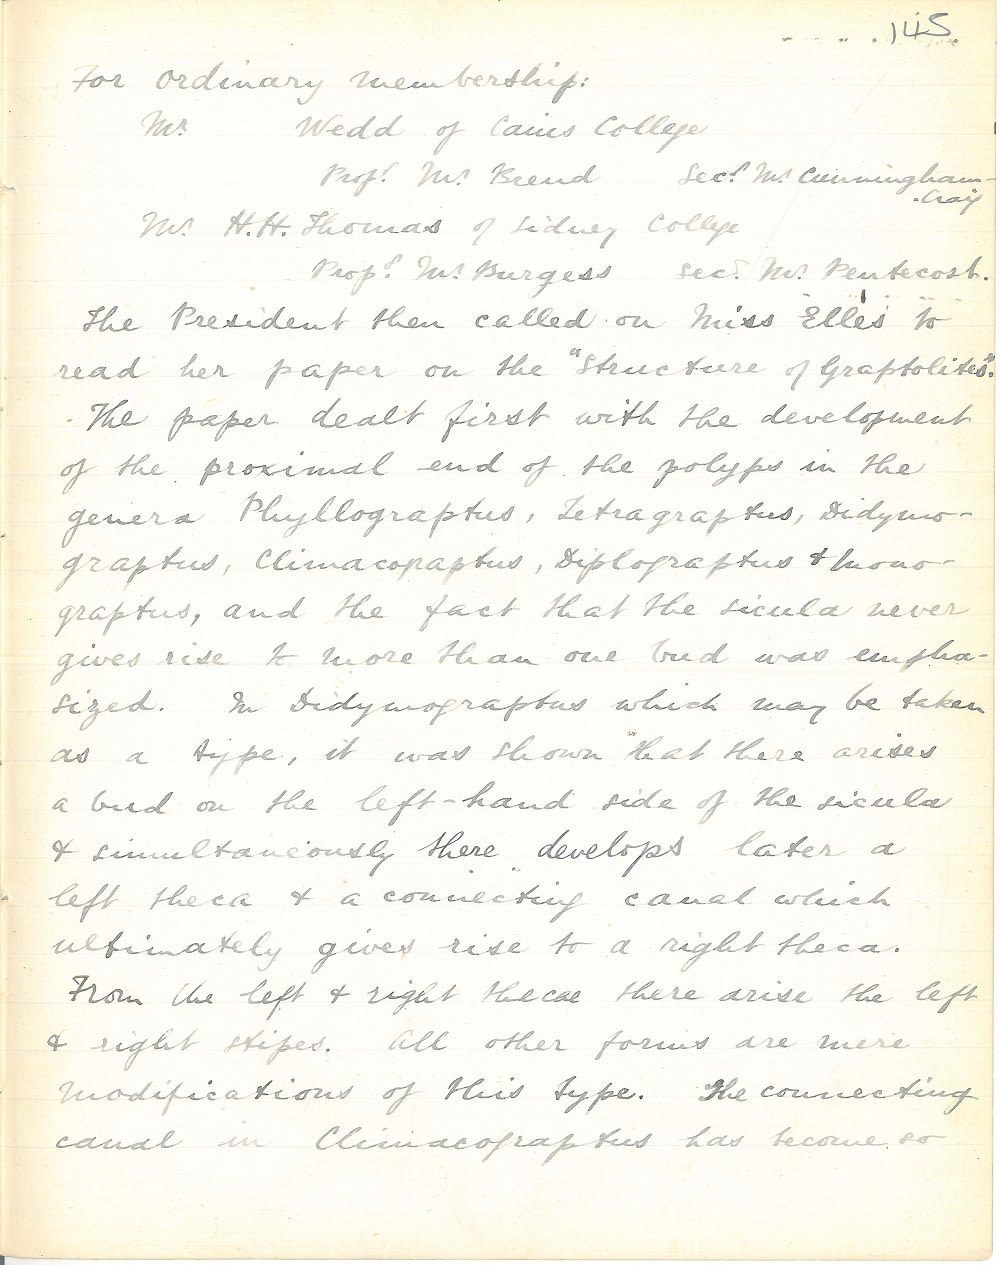 145.
For ordinary membership:
Mr Wedd of Caius College
Propr. Mr. Brend Secr. Mr. Cunningham-
-Craig
Mr. H.H. Thomas of Sidney College
Propr. Mr. Burgess Secr. Mr. Pentecost.
The President then called on Miss Elles to
read her paper on the "Structure of Graptolites".
The paper dealt first with the development
of the proximal end of the polyps in the
genera Phyllograptus, Tetragraptus, Didymo-
graptus, Climacopaptus, Diplograptus & Mono-
graptus, and the fact that the sicula never
gives rise to more than one bud was empha-
sized. In Didymograptus which may be taken
as a type, it was shown that there arises
a bud on the left-hand side of the sicula
& simultaneously there develops later a
left theca & a connecting canal which
ultimately gives rise to a right theca.
From the left & right thecae there arise the left
& right stipes. All other forms are mere
modifications of this type. The connecting
canal in Climacograptus has become so